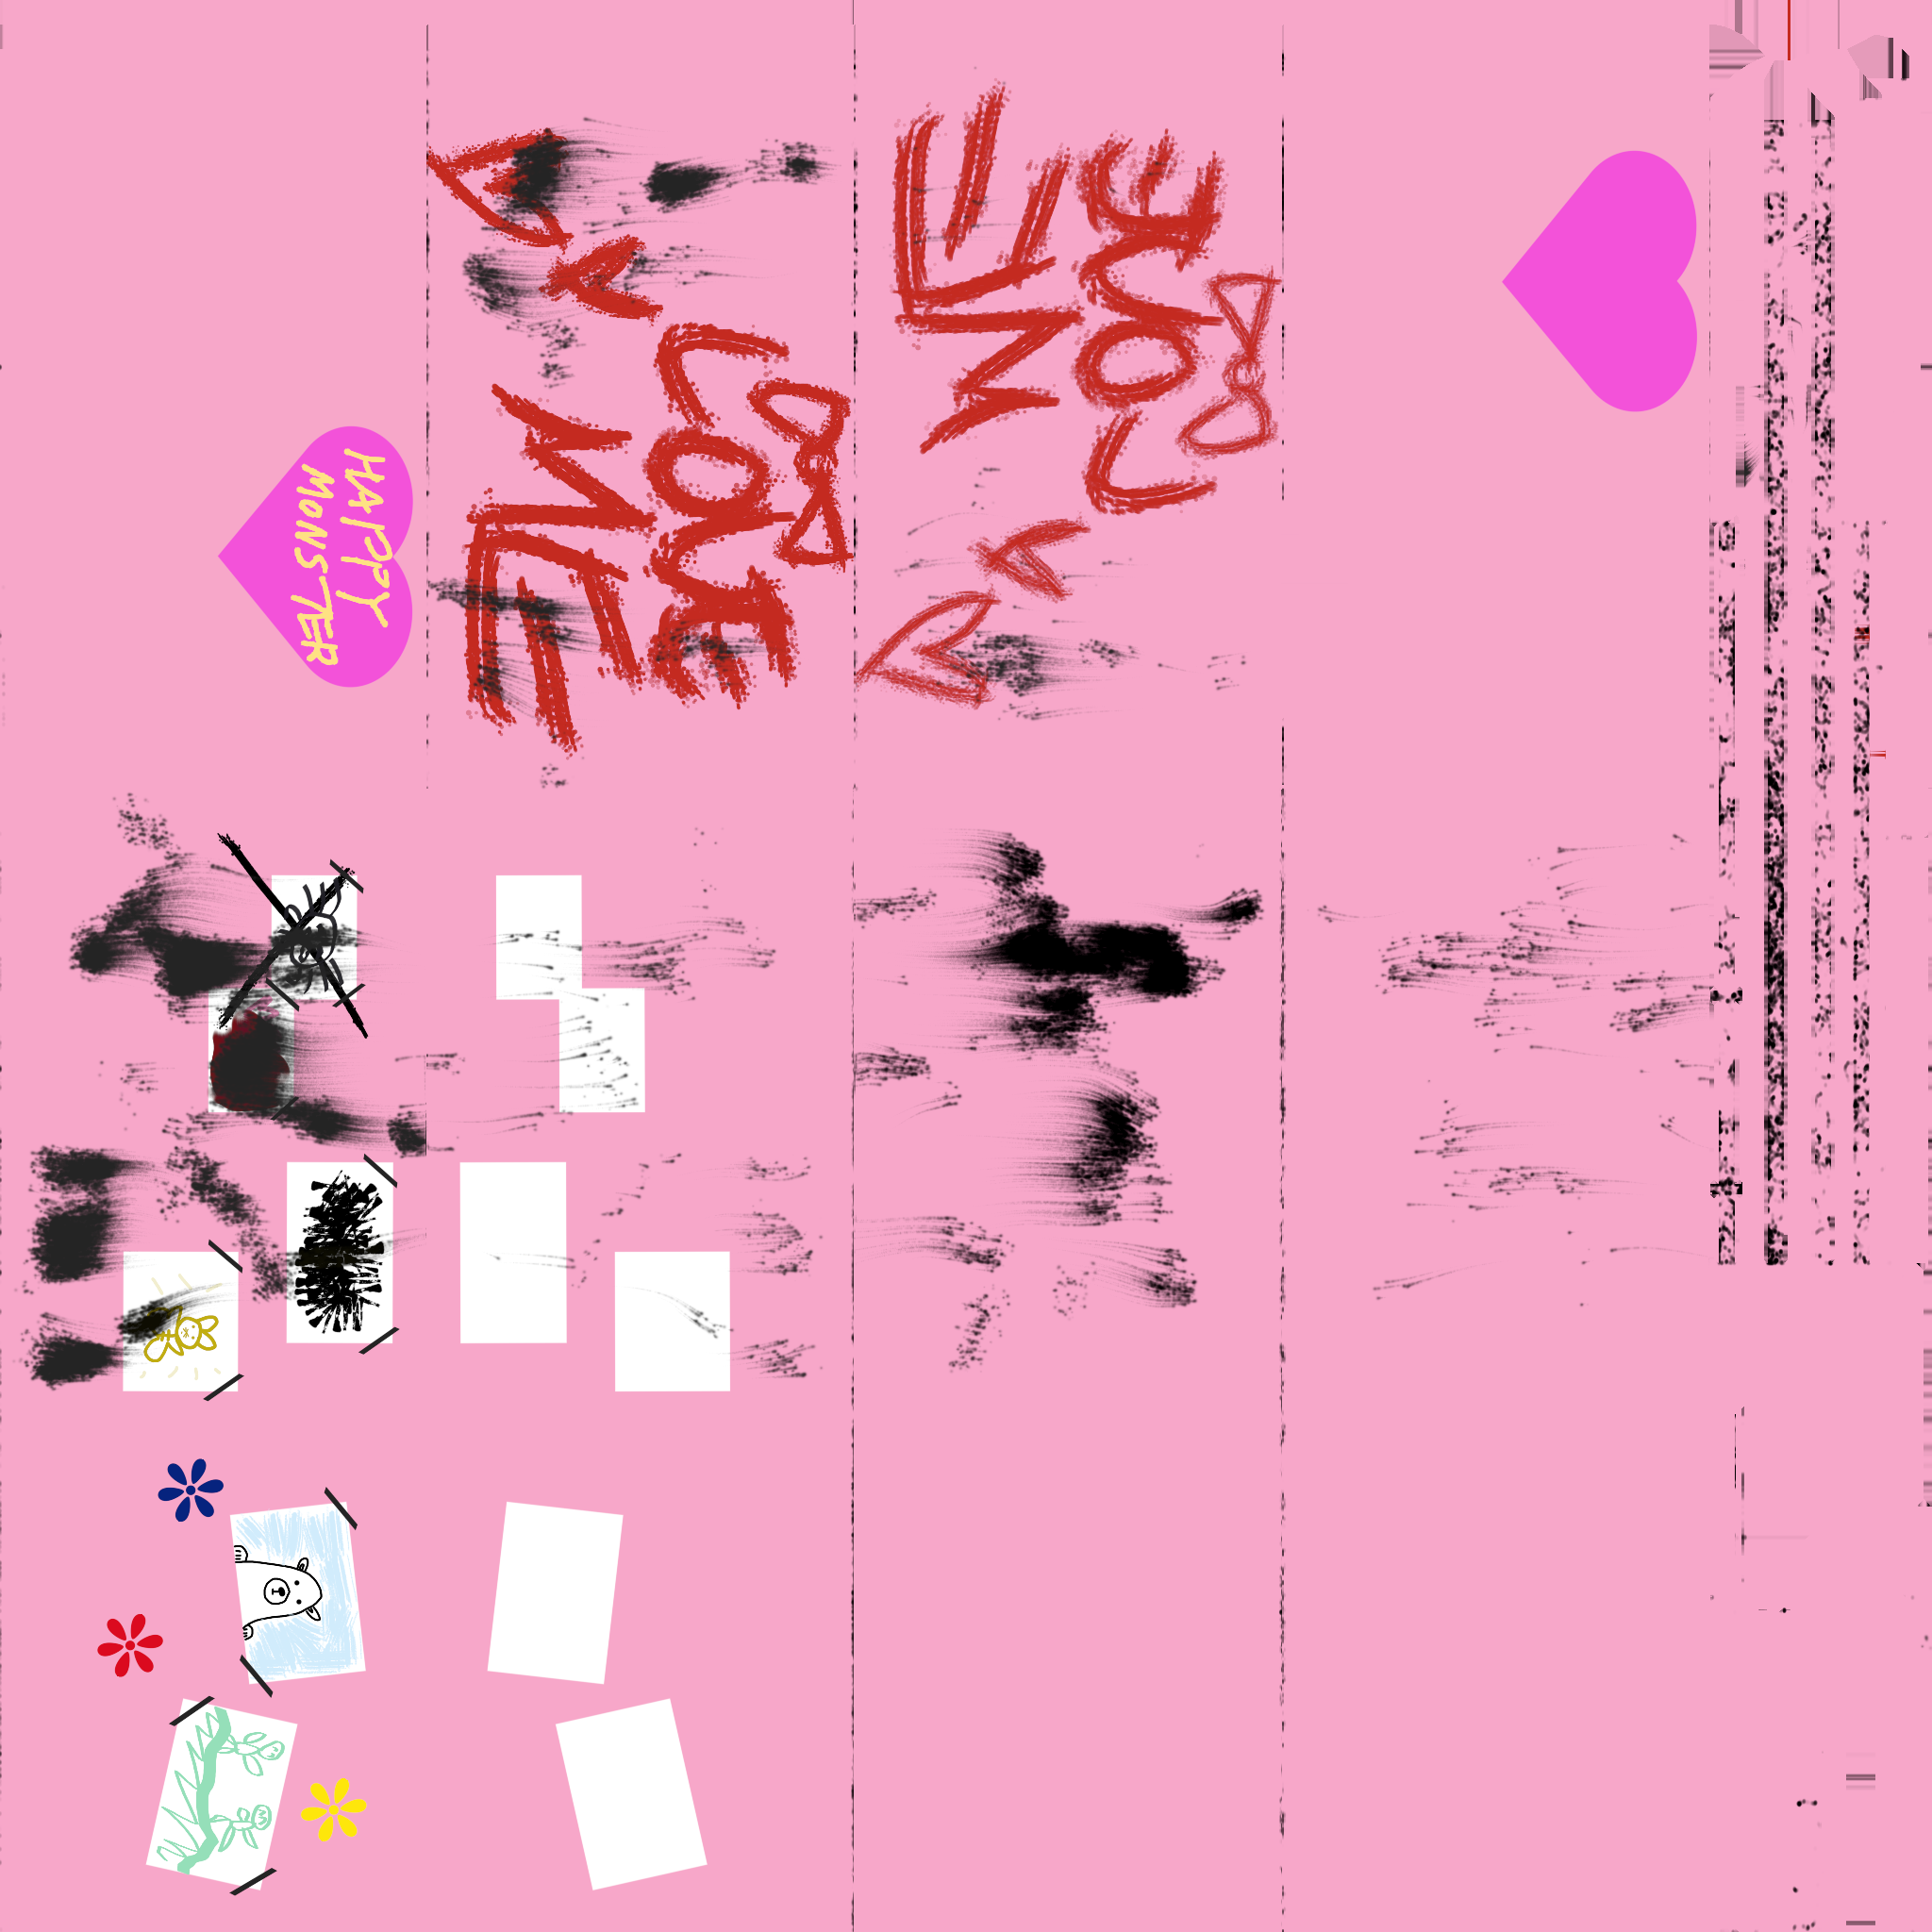 HAPPY
MONSTER
LOVE
ME
LOVE
ME